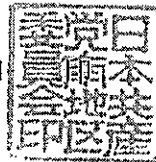 日本共産
党南地区
委員会印